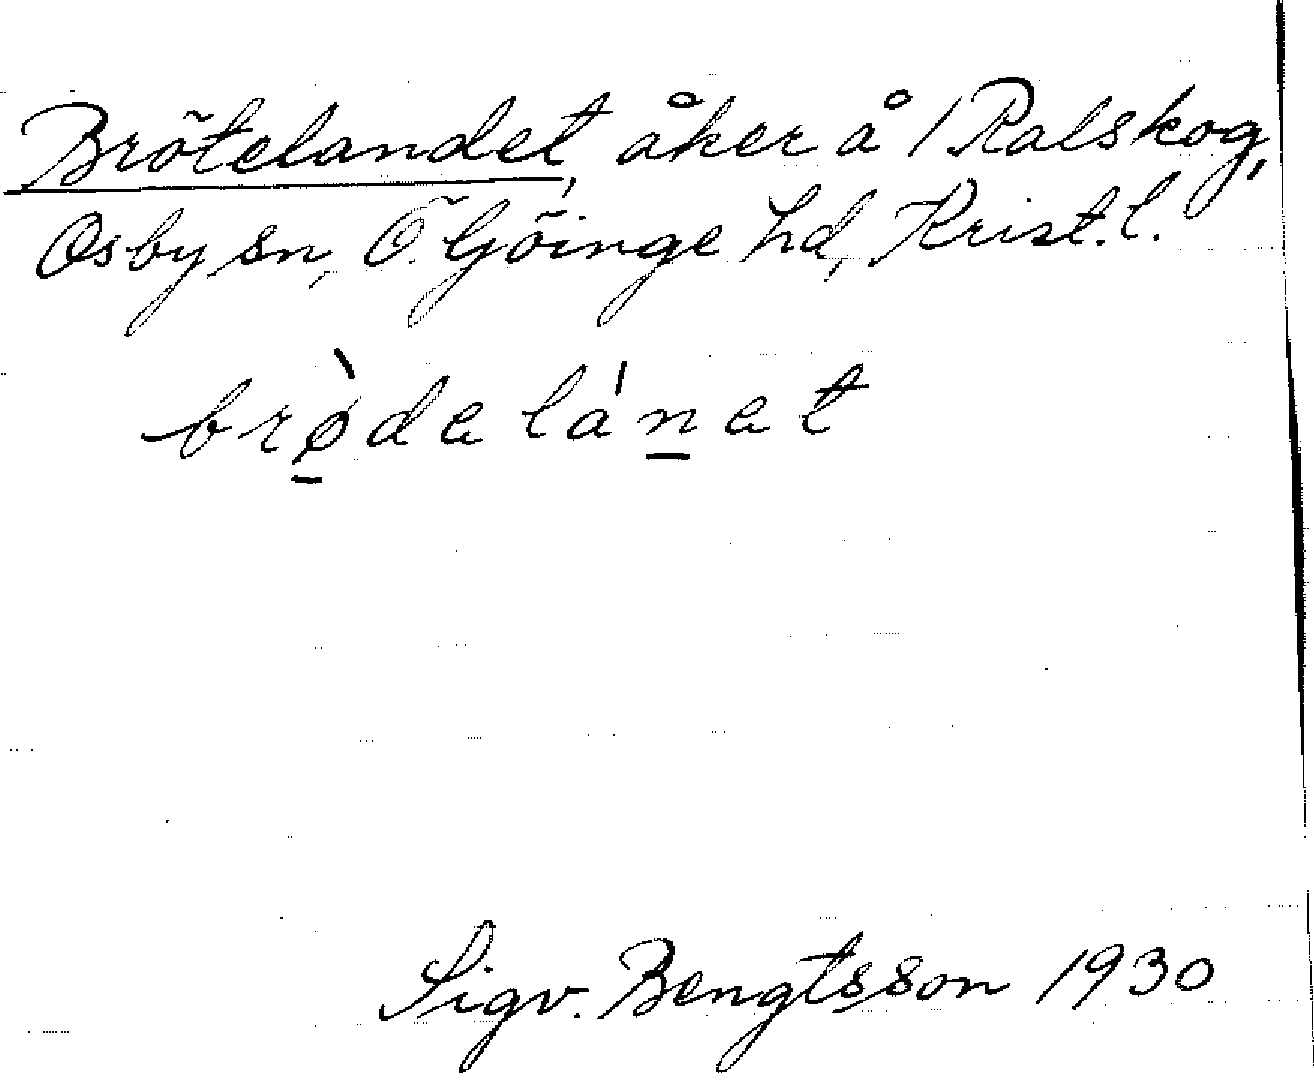 Brötelandet, åker å 1 Ralskog,
Osby sn, Ö. Göinge hd, Krist. l.
brø̠̀de lá n̠et
Sigv. Bengtsson 1930